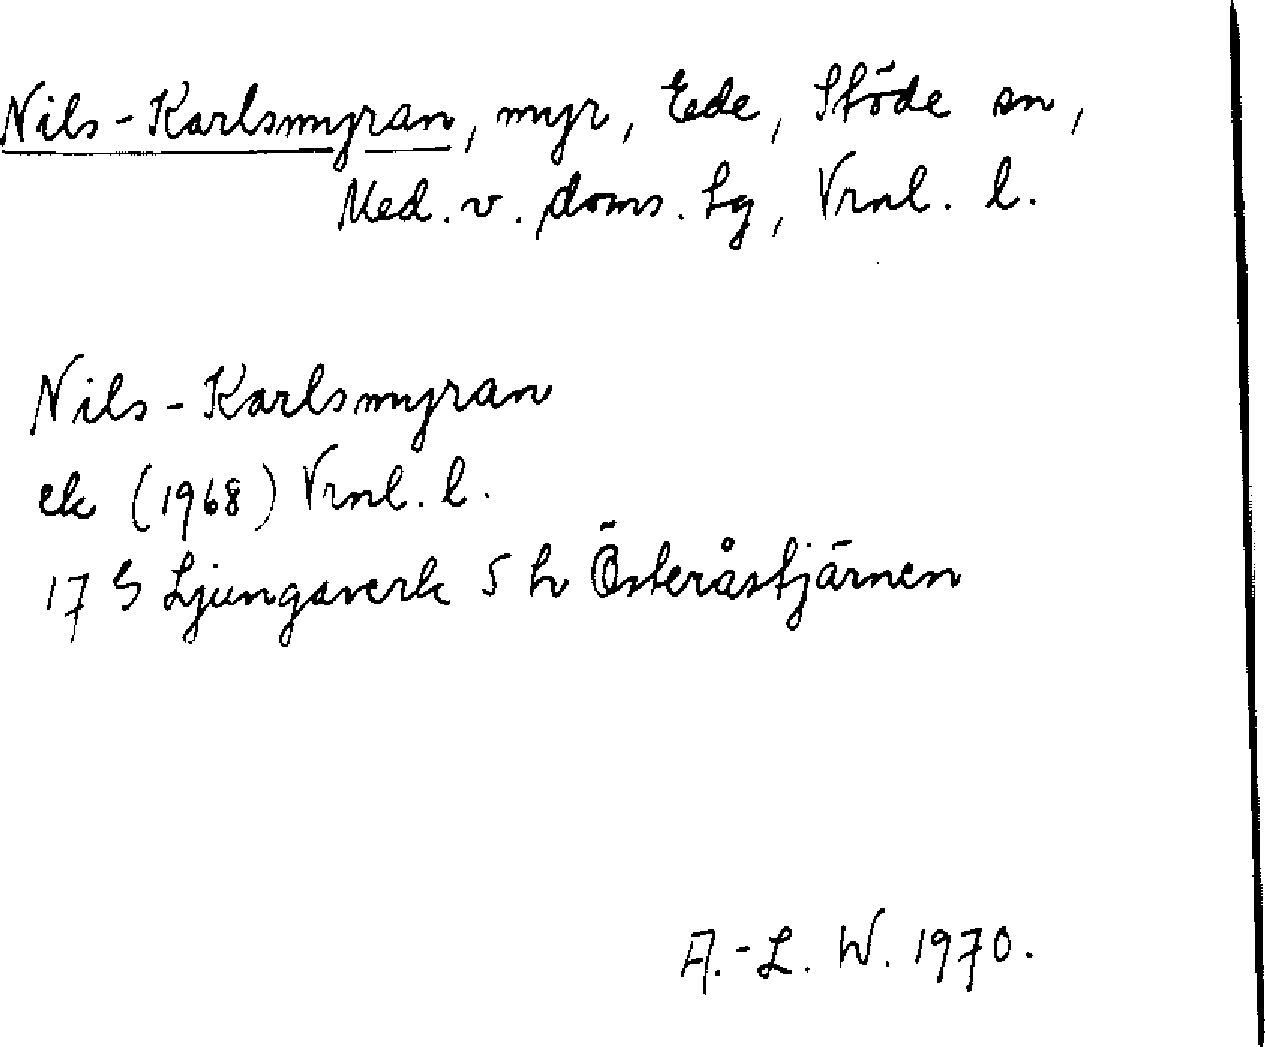 Nils-Karlsmyran, myr, Ede, Stöde sn,
Med. v. doms. lg, Vrnl. l.
Nils-Karlsmyran
ek (1968) Vrnl. l.
17 G Ljungaverk 5 h Österåstjärnen
A.-L. W. 1970.